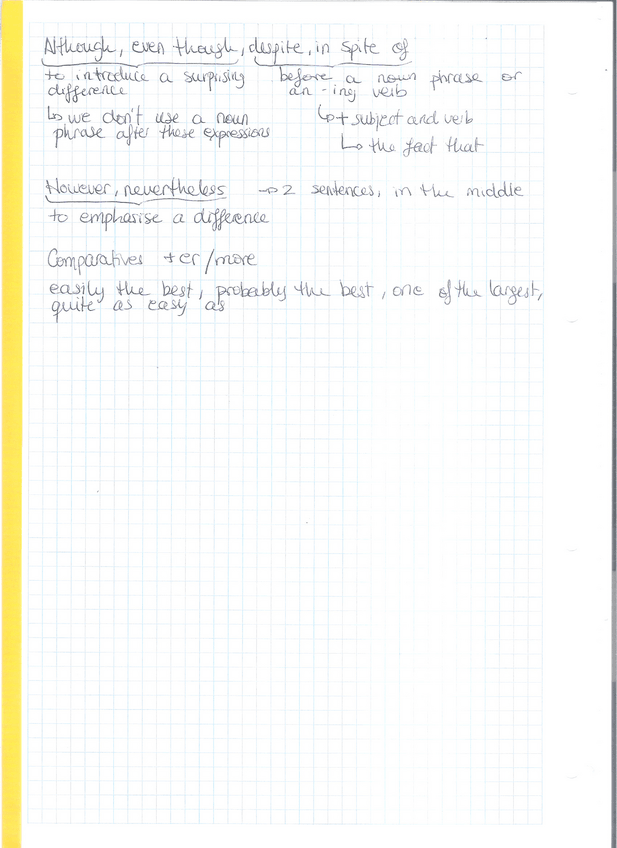 Although, even though, despite, in spite of
to introduce a surprising
difference
↳ we don't use a noun
phrase after these expressions
before a noun phrase or
an -ing verb
↳ + subject and verb
↳ the fact that
However, nevertheless → 2 sentences, in the middle
to emphasise a difference
Comparatives +er/more
easily the best, probably the best, one of the largest,
quite as easy as